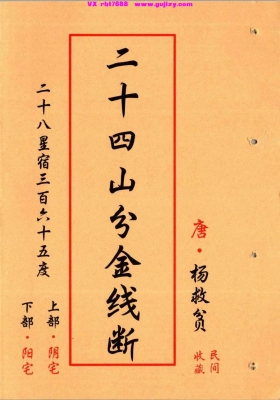 VX rbt7888 www.gujizy.com
唐·杨救贫
民间
收藏
二十四山分金线断
二十八星宿三百六十五度
上部·阴宅
下部·阳宅